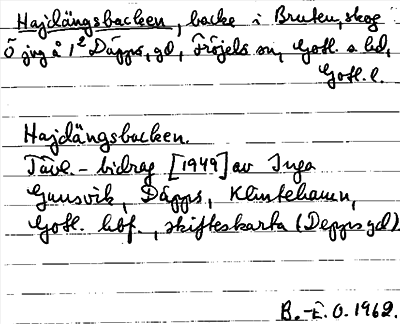 Hajdängsbacken, backe i Bruten, skog
Ö jvg å 1² Däpps, gd, Fröjels sn, Gotl. s hd,
Gotl. l.
Hajdängsbacken.
Tävl.-bidrag [1949] av Inga
Gunsvik, Däpps, Klintehamn,
Gotl. höf., skifteskarta (Depps gd)
B.-E. O. 1962.